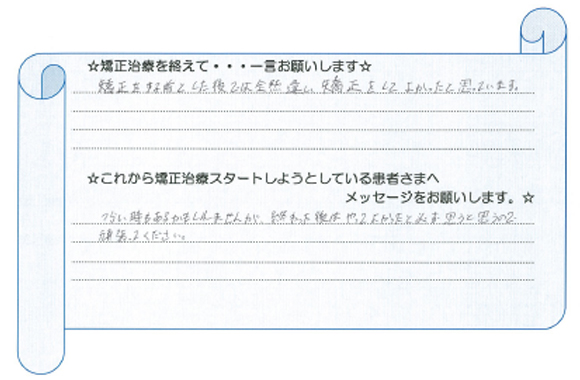 ☆矯正治療を終えて・・・一言お願いします☆
矯正をする前とした後では全然違い、矯正をしてよかったと思っています。
☆これから矯正治療スタートしようとしている患者さまへ
メッセージをお願いします。☆
つらい時もあるかもしれませんが、終わった後はやってよかったと必ず思うと思うので
頑張ってください。